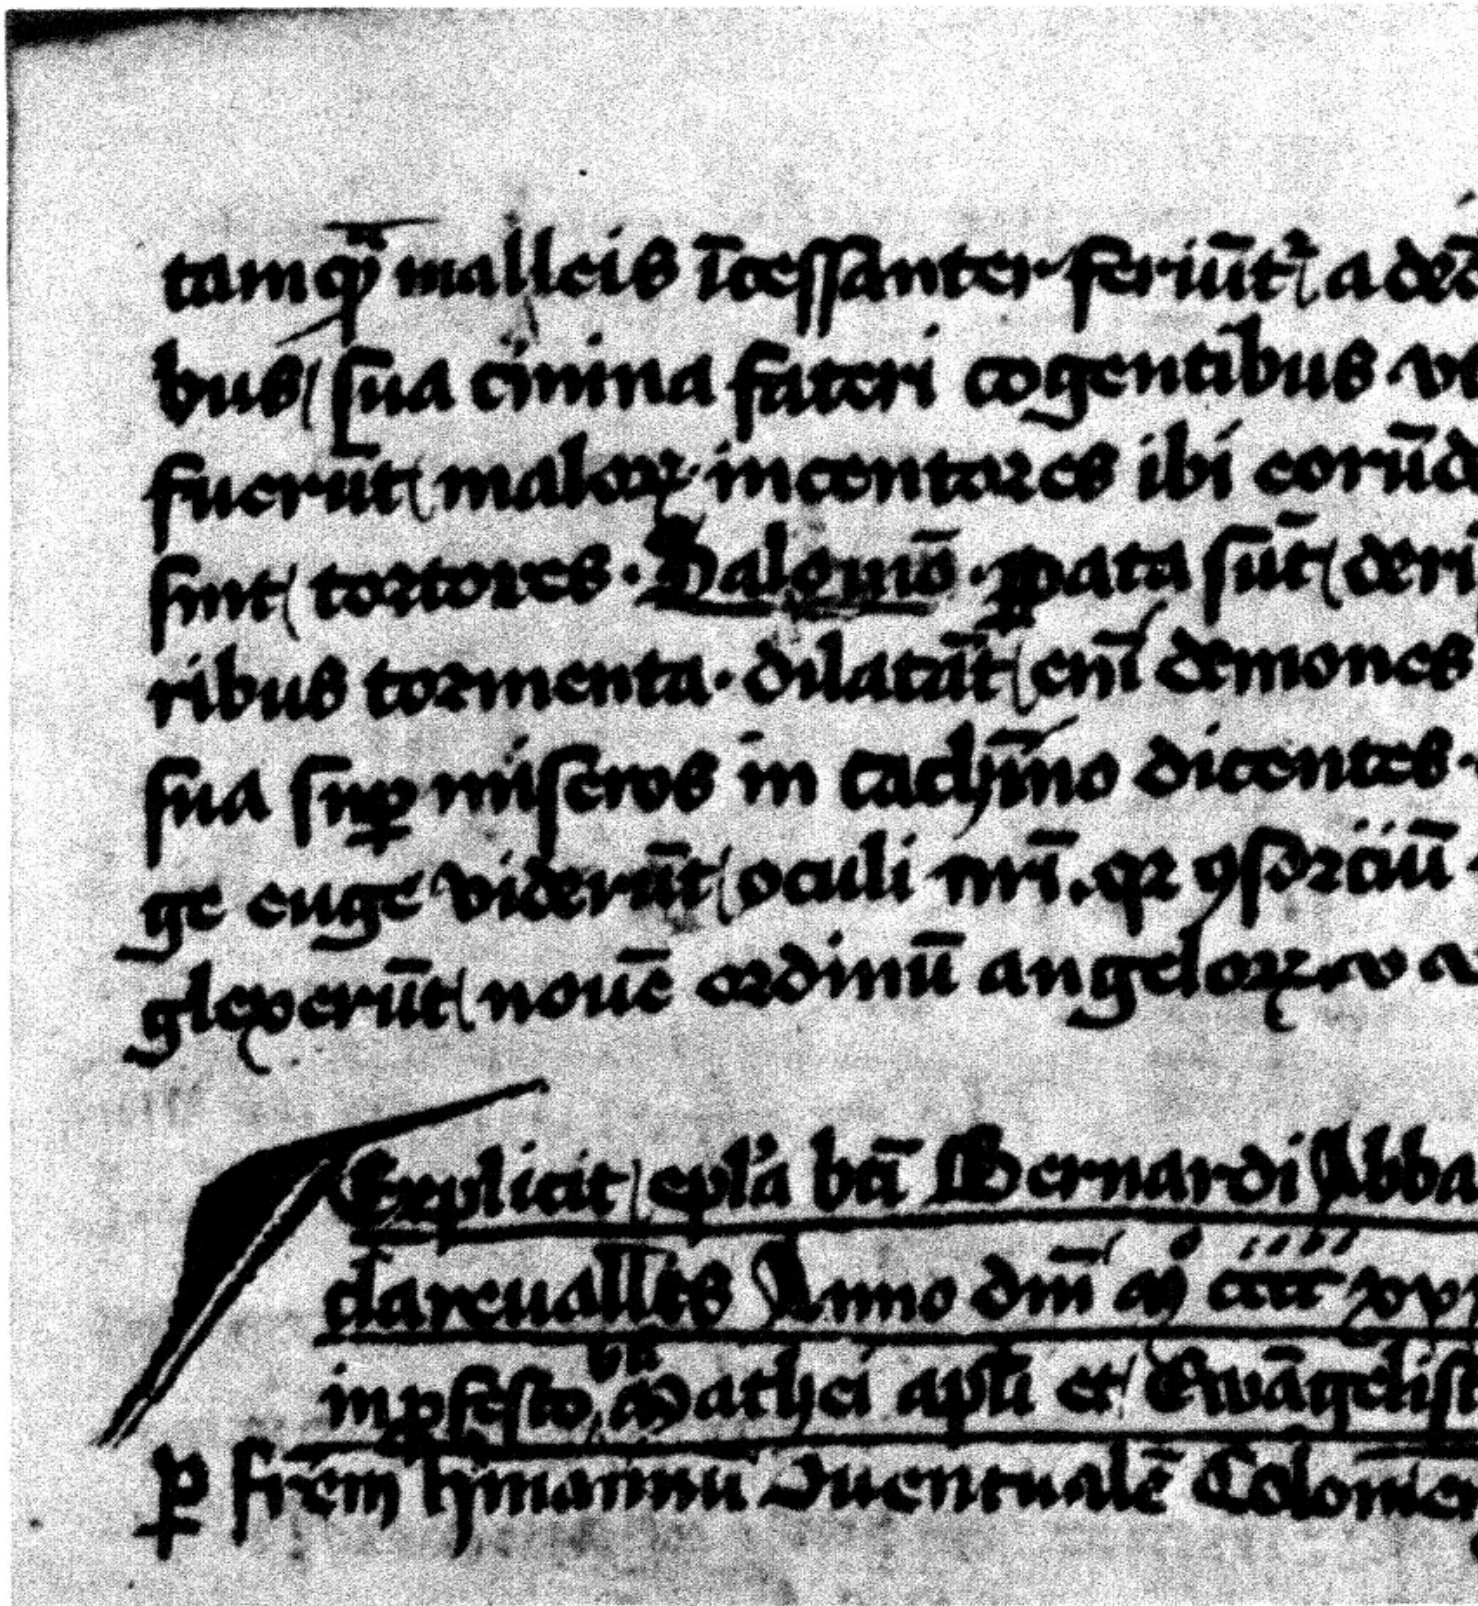 tamqᷓ malleis īcessanter feriūtʳ a
bus sua cͥmina fateri cogentibus
fuerūt maloꝝ incentores ibi eorūd
sint tortores · Salomō · ꝑata sūt deri
ribus tormenta · dilatāt enī demones
sua suꝑ miseros in cachīno dicentes
ge euge viderūt oculi nr̄i . qꝛ ꝯsorciū
glexerūt nouē ordinū angeloꝝ
Explicit epl̓a bt̄i Bernardi Abba
clareuallēs Anno dm̄ Mͦ cccc xv
in ꝓfesto bt̄i Mathei apl̄i et Ewāgelist
ꝑ frēm hͥmannū Iuentualē Colonien